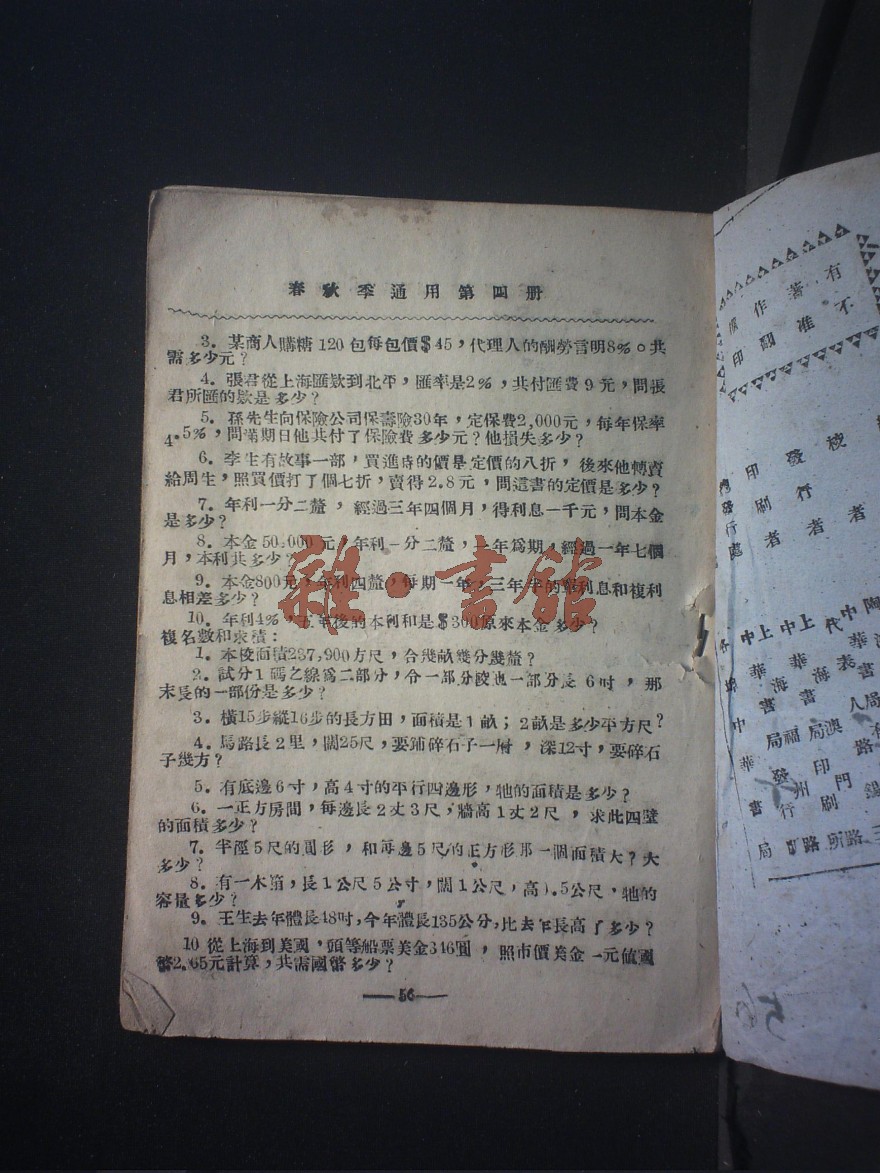 春秋季通用第四册
3. 某商人購糖120包每包價$45，代理人的酬勞言明8%。共
需多少元？
4. 張君從上海匯欵到北平，匯率是2%，共付匯費9元，問張
君所匯的欵是多少？
5. 孫先生向保險公司保壽險30年，定保費2,000元，每年保率
4.5%，問滿期日他共付了保險費多少元？他損失多少？
6. 李生有故事一部，買進時的價是定價的八折，後來他轉賣
給周生，照買價打了個七折，賣得2.8元，問這書的定價是多少？
7. 年利一分二釐，經過三年四個月，得利息一千元，問本金
是多少？
8. 本金50,000元，年利一分二釐，年爲期，經過一年七個
月，本利共多少？
9. 本金800元，年利四釐，每期一年，三年半的單利息和複利
息相差多少？
10. 年利4%，五年後的本利和是$300原來本金多少？
複名數和求積：
1. 本校面積237,900方尺，合幾畝幾分幾釐？
2. 試分1碼之線爲二部分，令一部分較他一部分長6吋，那
末長的一部份是多少？
3. 橫15步縱16步的長方田，面積是1畝；2畝是多少平方尺？
4. 馬路長2里，闊25尺，要鋪碎石子一層，深12寸，要碎石
子幾方？
5. 有底邊6寸，高4寸的平行四邊形，牠的面積是多少？
6. 一正方房間，每邊長2丈3尺，牆高1丈2尺，求此四壁
的面積多少？
7. 半徑5尺的圓形，和每邊5尺的正方形那一個面積大？大
多少？
8. 有一木箱，長1公尺5公寸，闊1公尺，高0.5公尺，牠的
容量多少？
9. 王生去年體長48吋，今年體長135公分，比去年長高了多少？
10 從上海到美國，頭等船票美金346圓，照市價美金一元值國
幣2.65元計算，共需國幣多少？
56
雜·書館
有 著 作 權
不 准 翻 印
印 刷 者
發 行 者
56